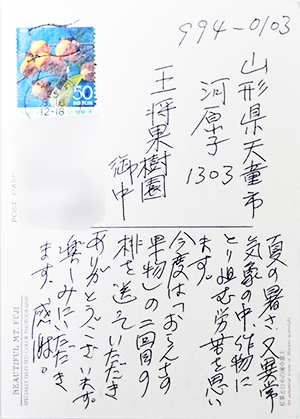 994-0103
山形県天童市
河原子
1303
王将果樹園
御中
夏の暑さ、又異常
気象の中、作物に
とり組む労苦を思い
ます。
今度は「おらえす
果物」の二回目の
桃を送っていただき
ありがとうございます。
楽しみにいただき
ます。感謝。
50
NIPPON
POST CARD
BEAUTIFUL MT. FUJI
SPECIALLY SELECTED COLOR PHOTOGRAPHS
紅葉と日本の湖の富士